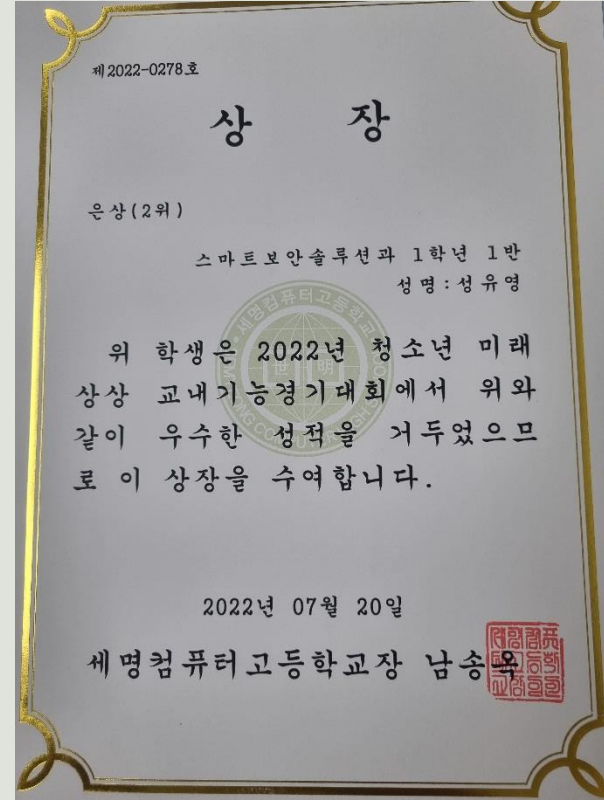 제2022-0278호
상 장
은상(2위)
스마트보안솔루션과 1학년 1반
성명:성유영
위 학생은 2022년 청소년 미래
상상 교내기능경기대회에서 위와
같이 우수한 성적을 거두었으므
로 이 상장을 수여합니다.
2022년 07월 20일
세명컴퓨터고등학교장 남송옥
세명컴퓨터고등학교
世明